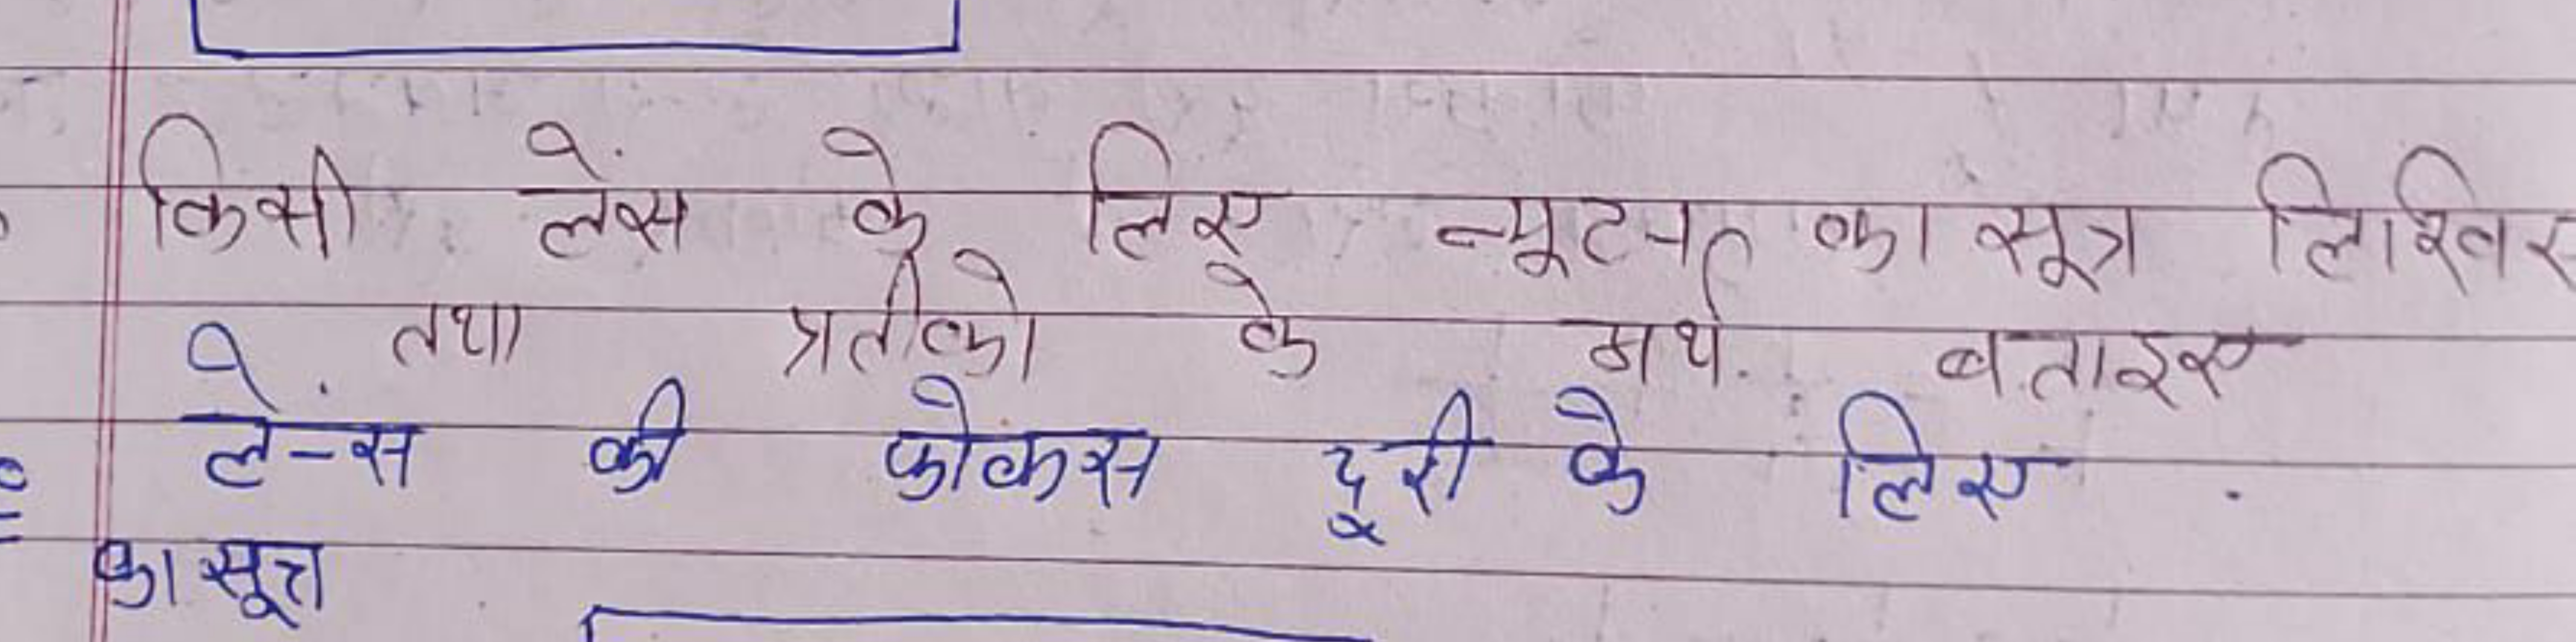 किसी लेंस के लिए न्यूटन का सूत्र लिखिए
तथा प्रतीको के अर्थ बताइए
लेन्स की फोकस दूरी के लिए
का सूत्र